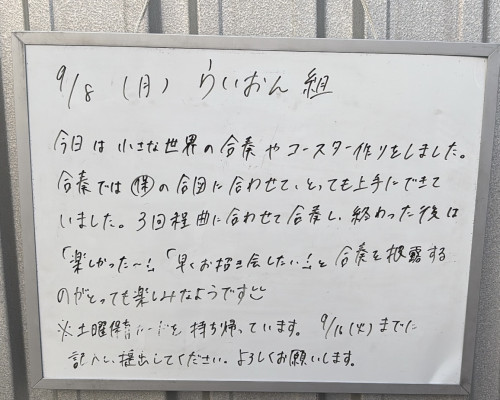 9/8 (月) らいおん組
今日は小さな世界の合奏やコースター作りをしました。
合奏では㋭の合図に合わせて、とっても上手にできて
いました。3回程曲に合わせて合奏し、終わった後は
「楽しかった〜!」「早くお招き会したい!」と合奏を披露する
のがとっても楽しみなようです
※土曜保育カードを持ち帰っています。9/16(火)までに
記入し、提出してください。よろしくお願いします。